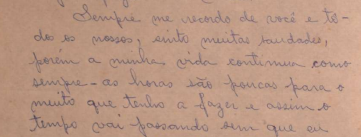 Sempre me recordo de você e to-
do os nossos, sinto muitas saudades,
porém a minha vida continua como
sempre - as horas são poucas para o
muito que tenho a fazer e assim o
tempo vai passando sem que eu